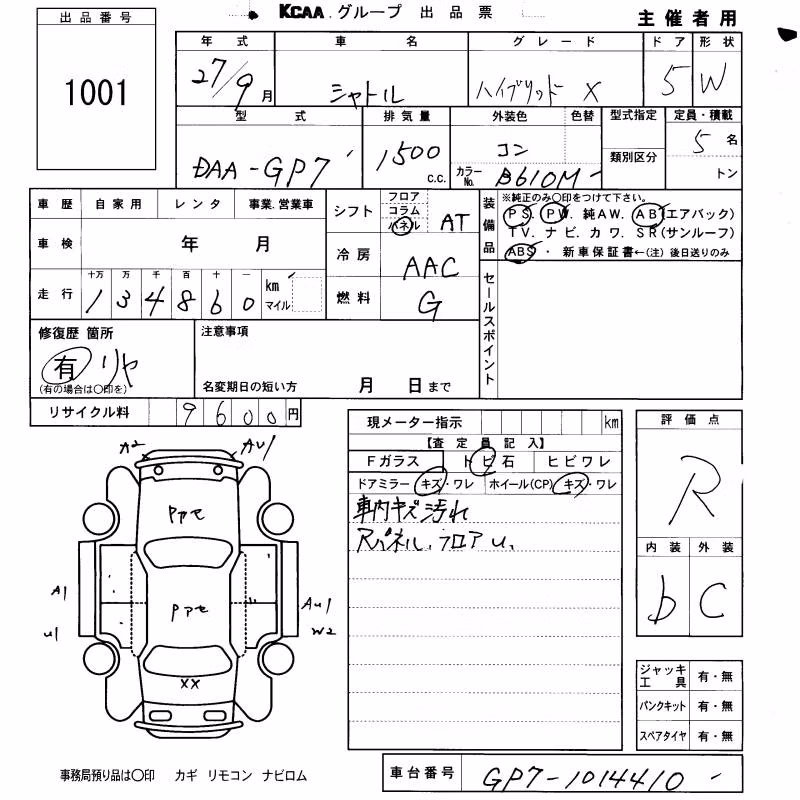 KCAA.グループ 出品票
主催者用
出品番号
1001
年式 車名 グレード ドア 形状
27/9月 シャトル ハイブリッド X 5 W
型式 排気量 外装色 色替 型式指定 定員・積載
DAA-GP7 1500 c.c. コン 類別区分 5 名
カラーNo. B610M トン
車歴 自家用 レンタ 事業.営業車
シフト フロア コラム パネル AT
装備品 ※純正のみ○印をつけて下さい。
PS. PW. 純AW. AB(エアバック)
TV. ナビ. カワ. SR(サンルーフ)
ABS・新車保証書←(注) 後日送りのみ
車検 年 月
冷房 AAC
走行 十万 万 千 百 十 一
134860 km マイル
燃料 G
セールスポイント
修復歴 箇所
有 リヤ
(有の場合は○印を)
注意事項
名変期日の短い方 月 日まで
リサイクル料 9600円
現メーター指示 km
【査定員記入】
Fガラス トビ石 ヒビワレ
ドアミラー キズ・ワレ ホイール(CP) キズ・ワレ
車内キズ汚れ
Rパネル、フロアU、
評価点
R
内装 外装
b C
A2 AU1
Pアセ
A1
Pアセ
AU1
U1 W2
XX
ジャッキ工具 有・無
パンクキット 有・無
スペアタイヤ 有・無
事務局預り品は○印 カギ リモコン ナビロム
車台番号 GP7-1014410